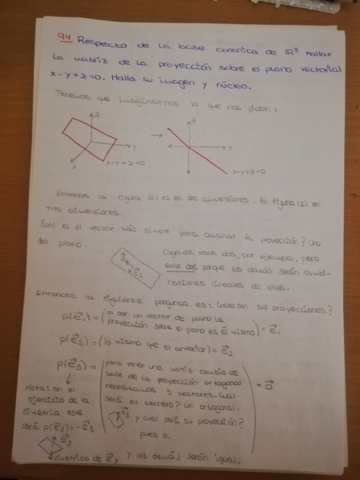 94 Respecto de la base canónica de R³ hallar
la matriz de la proyección sobre el plano vectorial
x-y+z=0. Halla su imagen y núcleo.
Tenemos que imaginarnos lo que nos piden:
z
y
x
x-y+z=0
→
z
y
x-y+z=0
Entonces la figura (2) es en dos dimensiones, la figura (1) en
tres dimensiones.
¿Cual es el vector más simple para calcular la proyección? Uno
del plano.
e₁ e₂
Cogemos esos dos, por ejemplo, pero
solo dos porque los demás serán combi-
naciones lineales de ellos.
Entonces la siguiente pregunta es: ¿cuales son sus proyecciones?
p(e₁) = (al ser un vector de plano la proyección sobre el plano es él mismo) = e₁
p(e₂) = (lo mismo que el anterior) = e₂
p(e₃) = (para tener una matriz cambio de
base de la proyección ortogonal
necesitamos 3 vectores. ¿Cual
será el tercero? Un ortogonal.
e₃ y cual será su proyección?
pues 0.) = 0
Notas: en el
ejercicio de la
simetría este
será p(e₃) = -e₃
e₃
simétrico de e₃ y los demás serán igual.